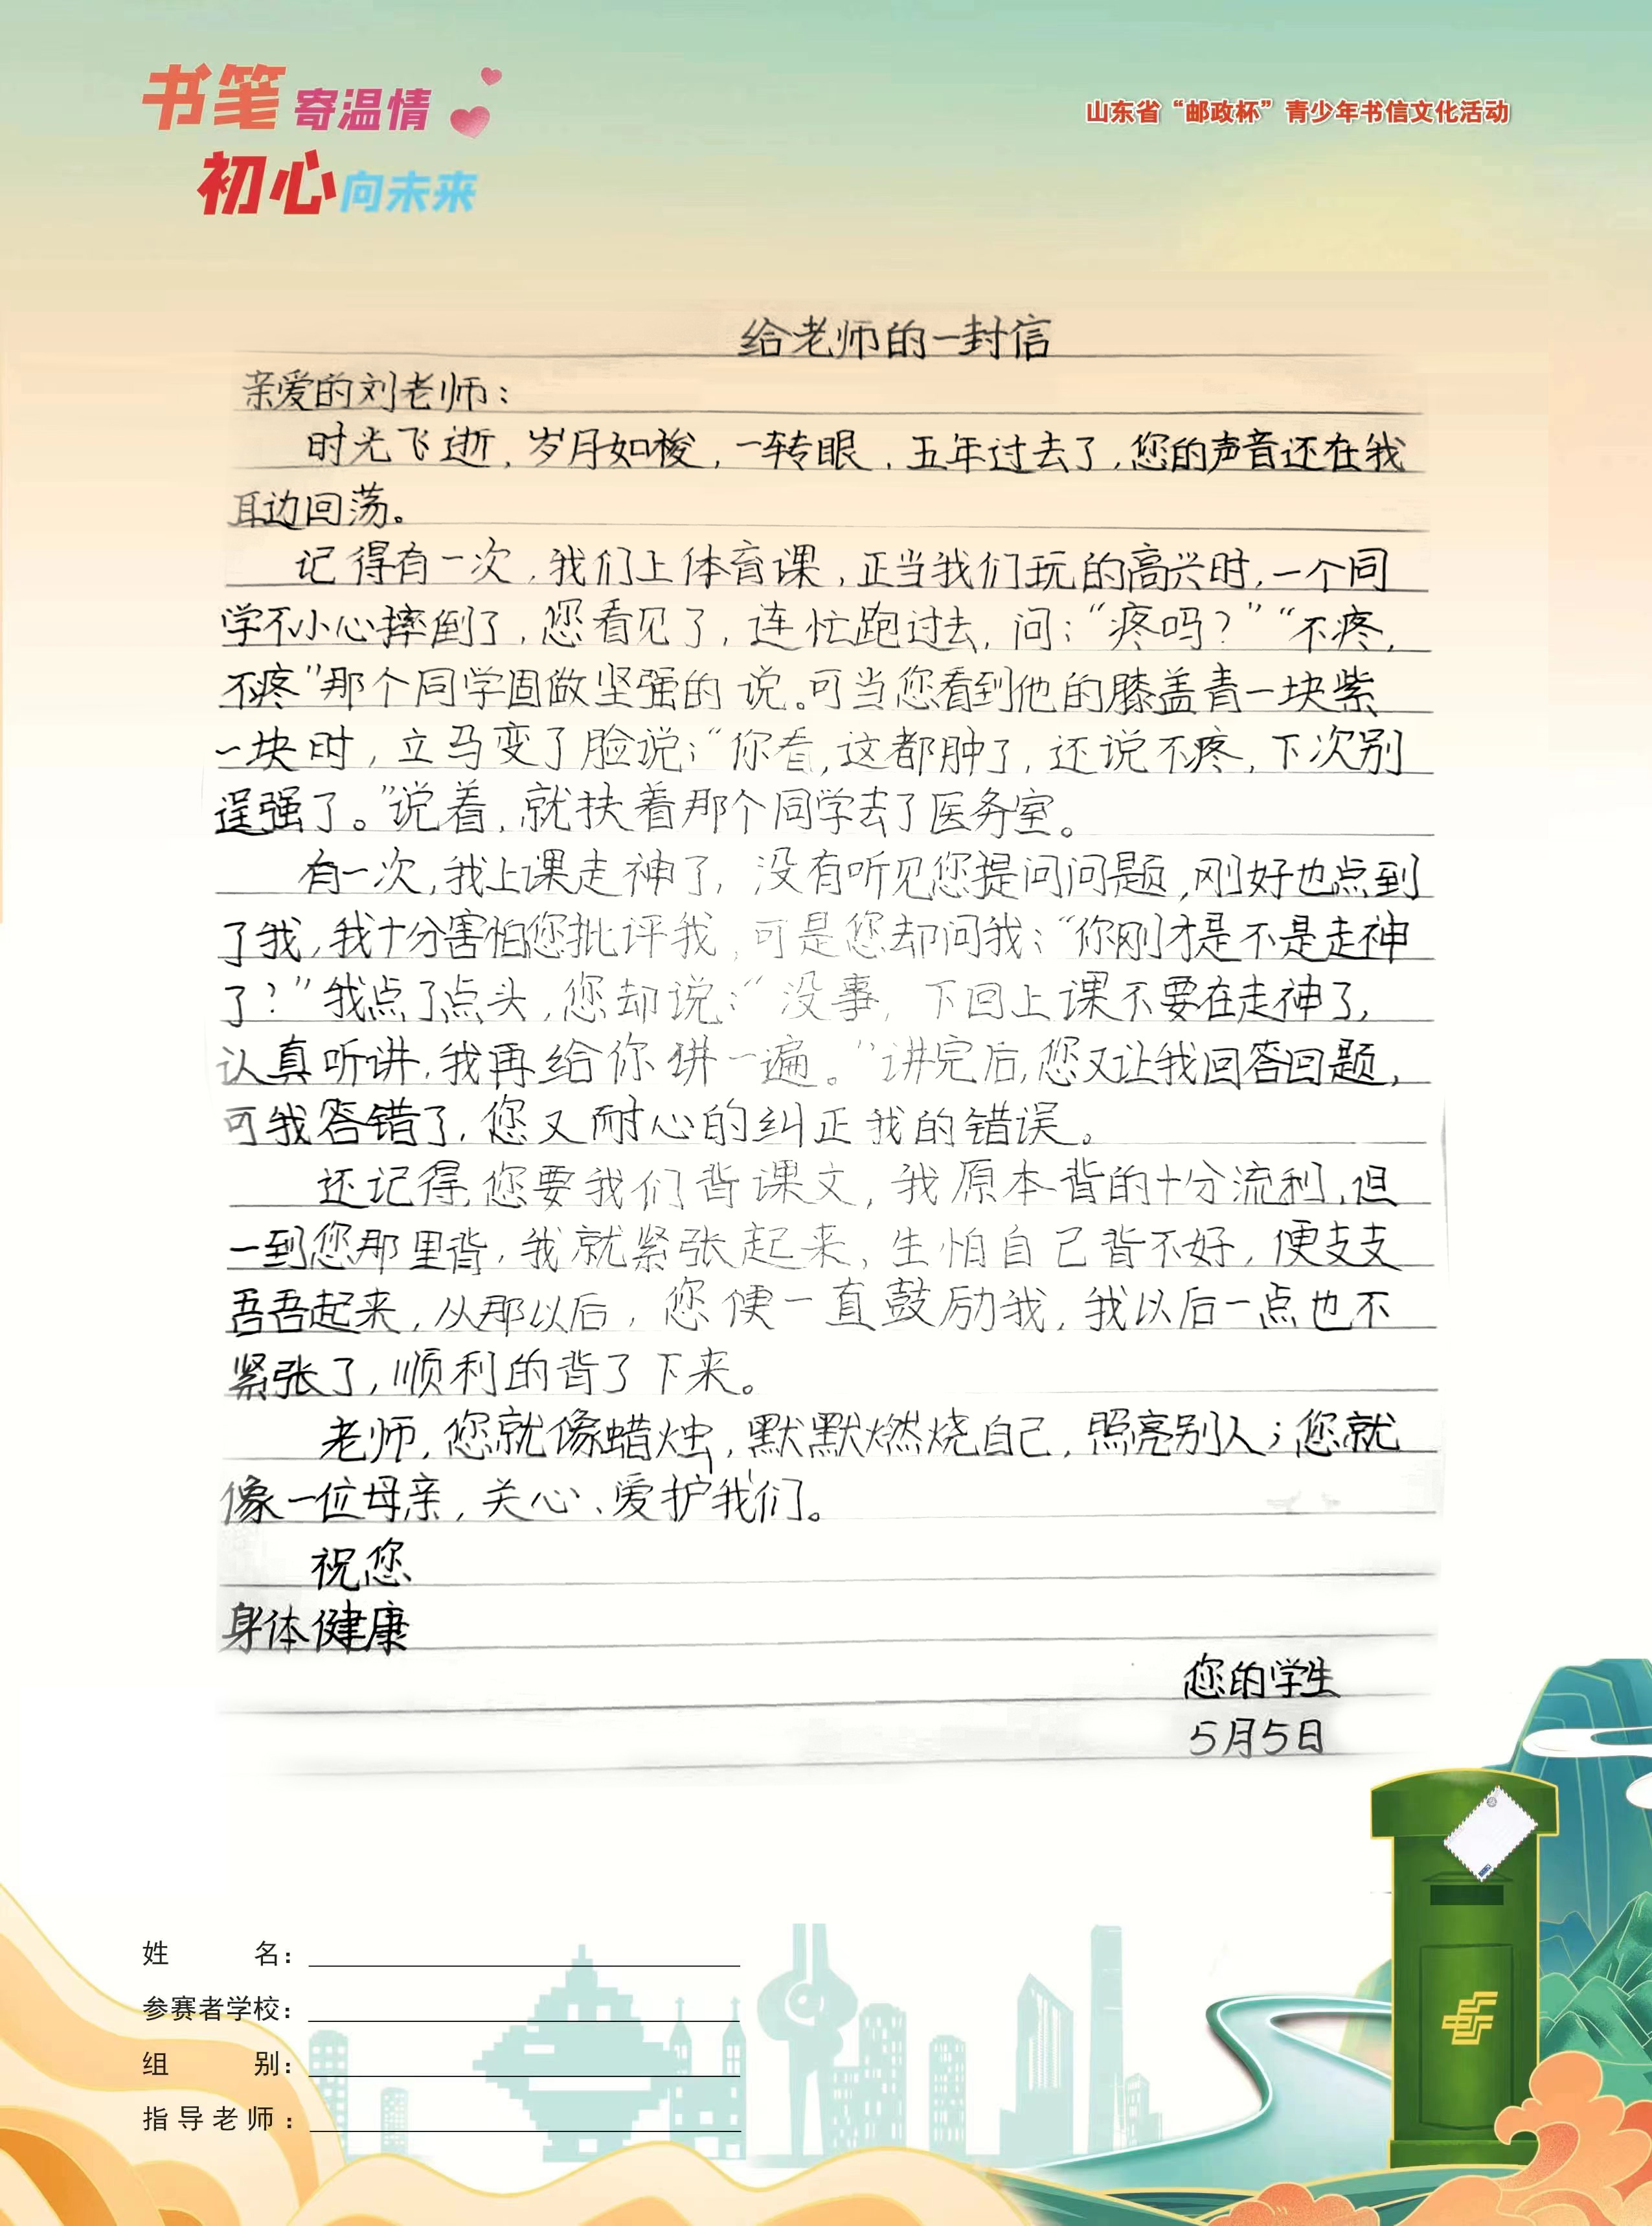 书笔寄温情
初心向未来
山东省“邮政杯”青少年书信文化活动
给老师的一封信
亲爱的刘老师：
时光飞逝，岁月如梭，一转眼，五年过去了，您的声音还在我
耳边回荡。
记得有一次，我们上体育课，正当我们玩的高兴时，一个同
学不小心摔倒了，您看见了，连忙跑过去，问：“疼吗？”“不疼，
不疼”那个同学固做坚强的说。可当您看到他的膝盖青一块紫
一块时，立马变了脸说：“你看，这都肿了，还说不疼，下次别
逞强了。”说着，就扶着那个同学去了医务室。
有一次，我上课走神了，没有听见您提问问题，刚好也点到
了我，我十分害怕您批评我，可是您却问我：“你刚才是不是走神
了？”我点了点头，您却说：“没事，下回上课不要在走神了，
认真听讲，我再给你讲一遍。”讲完后，您又让我回答回题，
可我答错了，您又耐心的纠正我的错误。
还记得，您要我们背课文，我原本背的十分流利，但
一到您那里背，我就紧张起来，生怕自己背不好，便支支
吾吾起来，从那以后，您便一直鼓励我，我以后一点也不
紧张了，顺利的背了下来。
老师，您就像蜡烛，默默燃烧自己，照亮别人；您就
像一位母亲，关心、爱护我们。
祝您
身体健康
您的学生
5月5日
姓名：
参赛者学校：
组别：
指导老师：